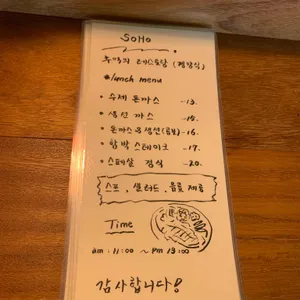 SOHO
추억의 레스토랑 (경양식)
*lunch menu
• 수제 돈까스 -13.
• 생선 까스 -15.
• 돈까스&생선(콤보)-16.
• 함박 스테이크 -17.
• 스페샬 정식 -20.
스프, 샐러드, 음료 제공
Time
am : 11:00 ~ PM 13:00
감사합니다!